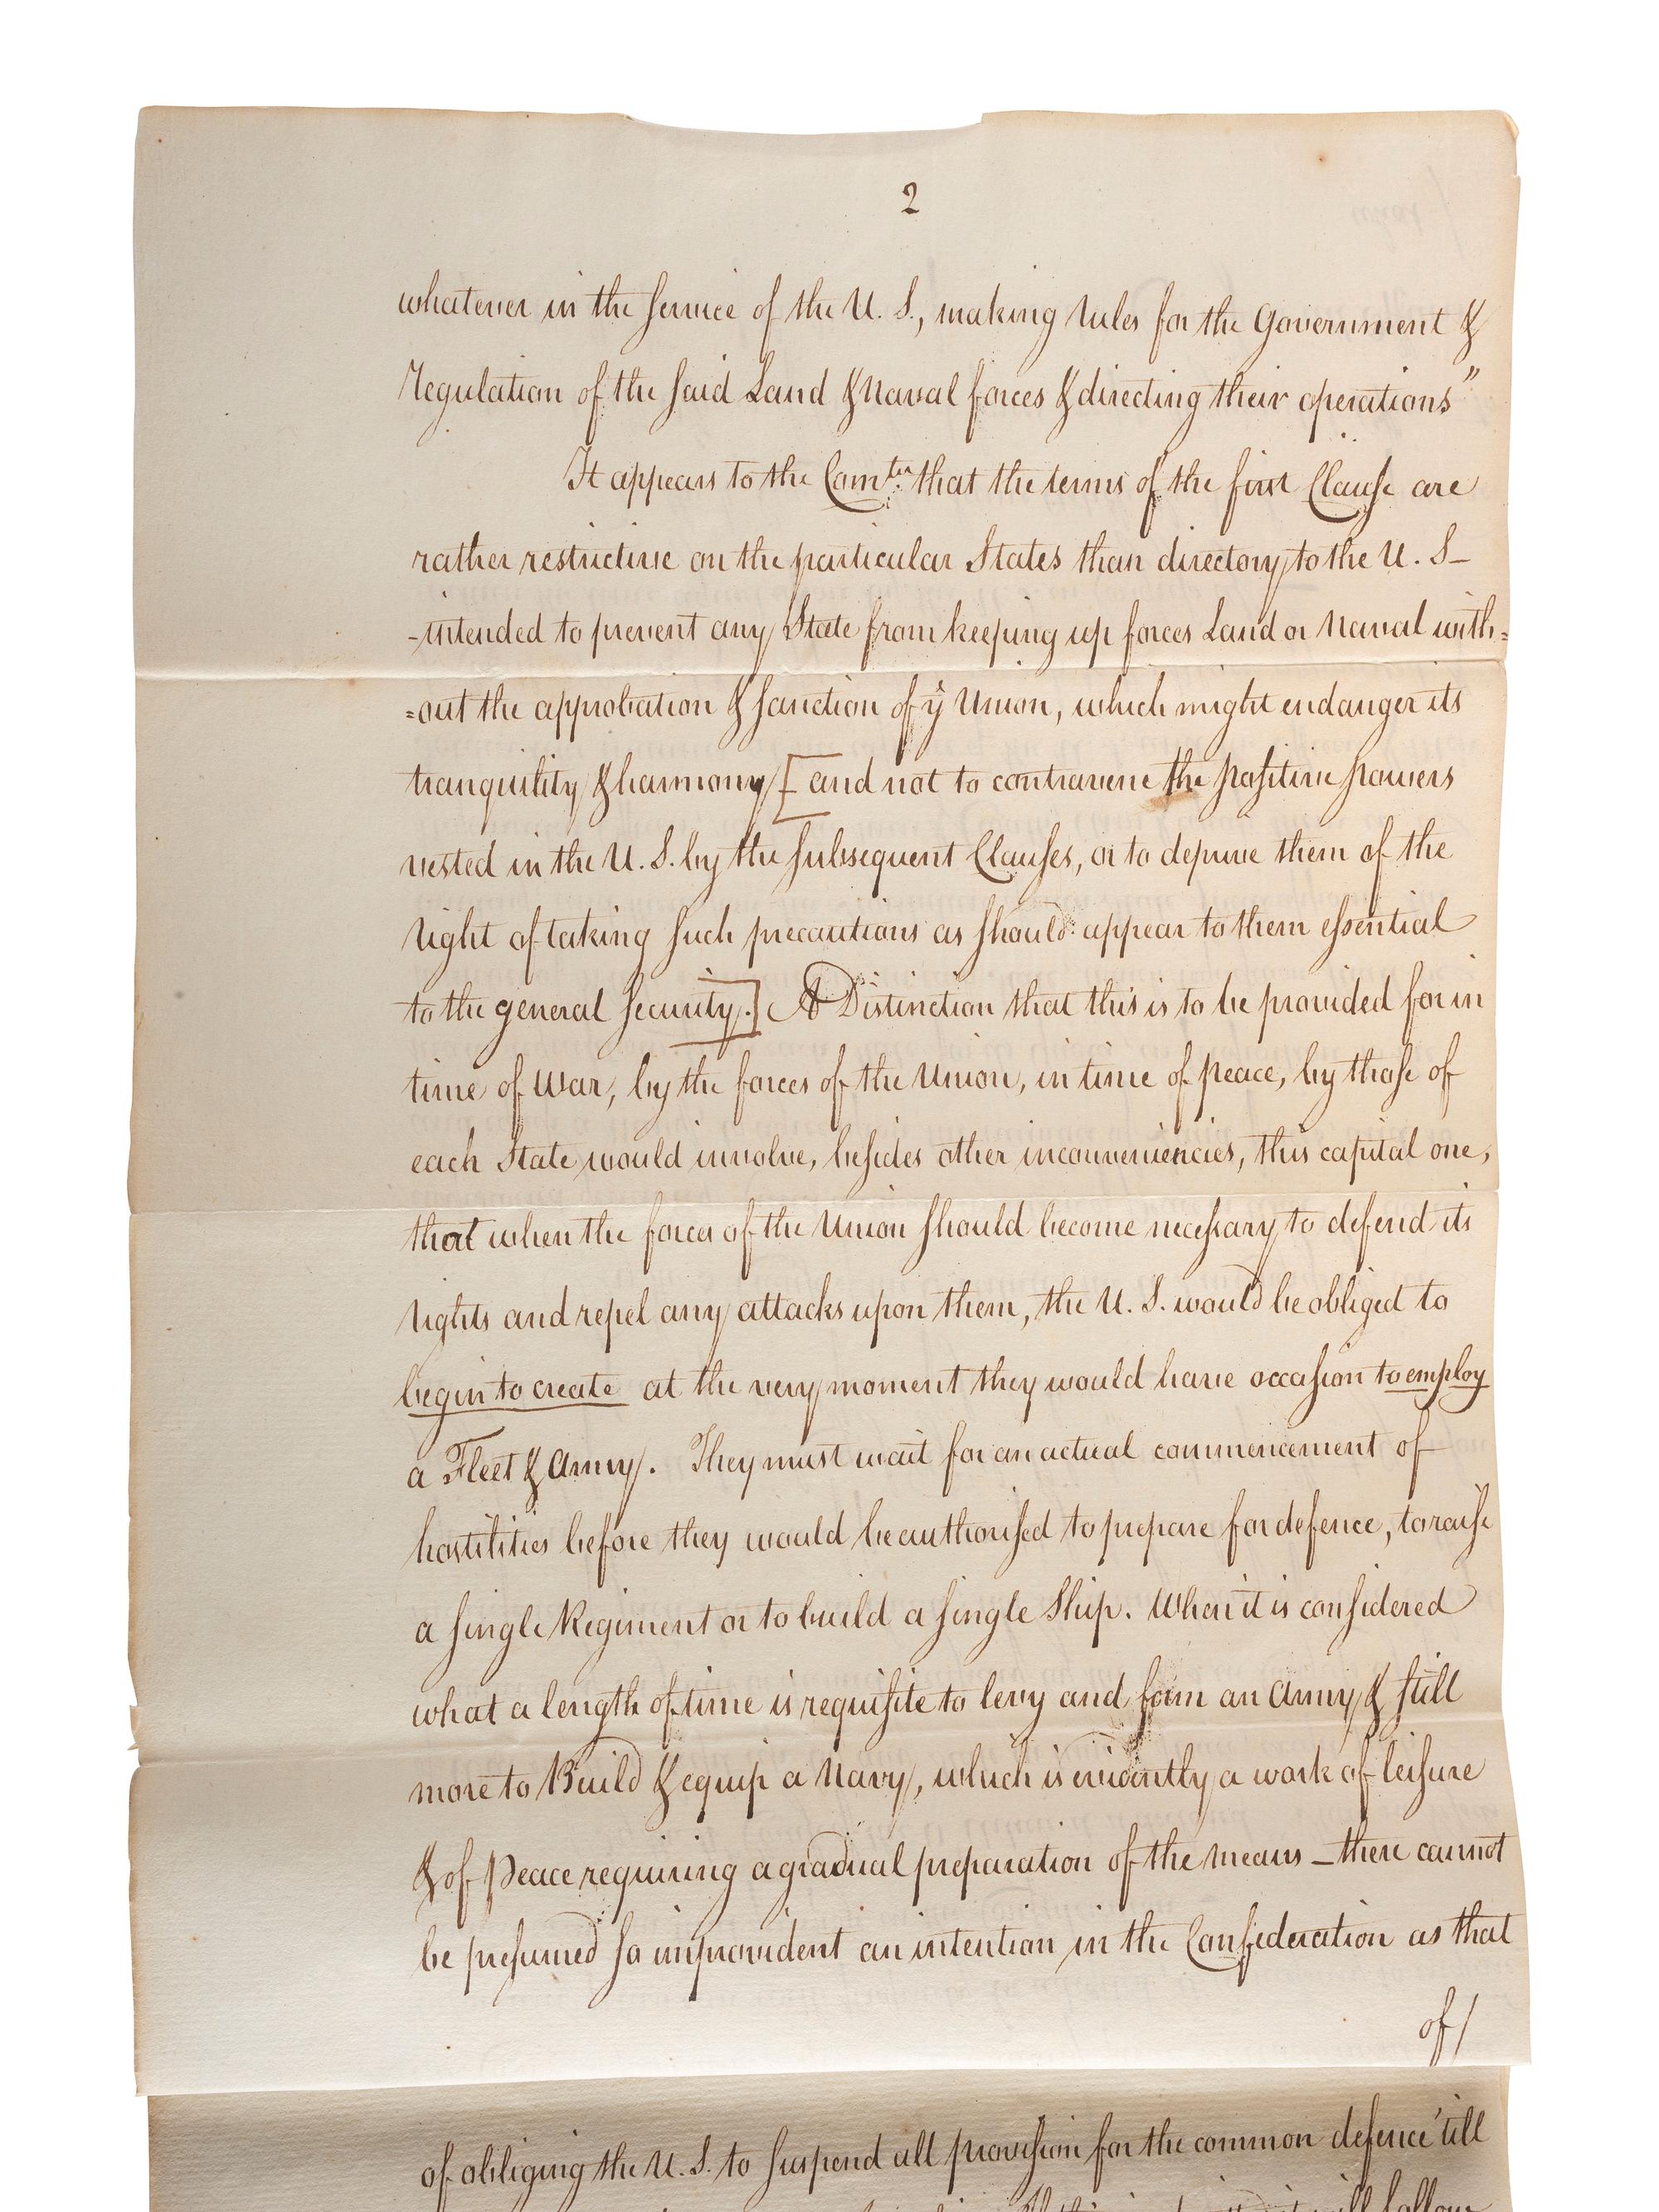 2
whatever in the Service of the U. S., making rules for the Government &
Regulation of the said Land & Naval forces & directing their operations"
It appears to the Comtee. that the terms of the first Clause are
rather restrictive on the particular States than directory to the U. S—
-intended to prevent any State from keeping up forces Land or Naval with=
=out the approbation & sanction of ye Union, which might endanger its
tranquility & harmony [and not to contravene the positive powers
vested in the U. S. by the subsequent Clauses, or to deprive them of the
right of taking such precautions as should appear to them essential
to the general security.] A Distinction that this is to be provided for in
time of War, by the forces of the Union, in time of peace, by those of
each State would involve, besides other inconveniencies, this capital one,
that when the forces of the Union should become necessary to defend its
rights and repel any attacks upon them, the U. S. would be obliged to
begin to create at the very moment they would have occasion to employ
a Fleet & Army. They must wait for an actual commencement of
hostilities before they would be authorised to prepare for defence, to raise
a single Regiment or to build a single Ship. When it is considered
what a length of time is requisite to levy and form an Army & still
more to Build & equip a Navy, which is evidently a work of leisure
& of Peace requiring a gradual preparation of the means — there cannot
be presumed so improvident an intention in the Confederation as that
of/
of obliging the U. S. to suspend all provision for the common defence 'till
will follow